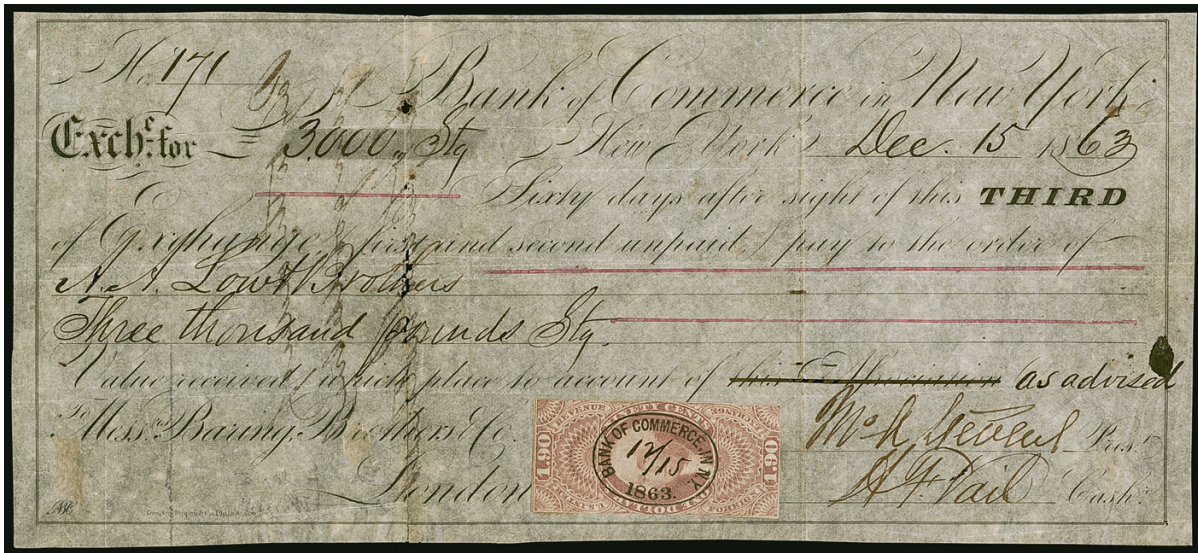 No. 171
Bank of Commerce in New York
Exche. for £ 3.000 " Stg New York Dec. 15 1863
Sixty days after sight of this THIRD
of Exchange, first and second unpaid, pay to the order of
A. A. Low & Brothers
Three thousand pounds Stg.
Value received, which place to account of this Association as advised
To Messrs. Baring Brothers & Co.
London
Prest.
H. F. Vail Cashr.
BANK OF COMMERCE IN N.Y.
12/15
1863.
NINETY CENT
190
190